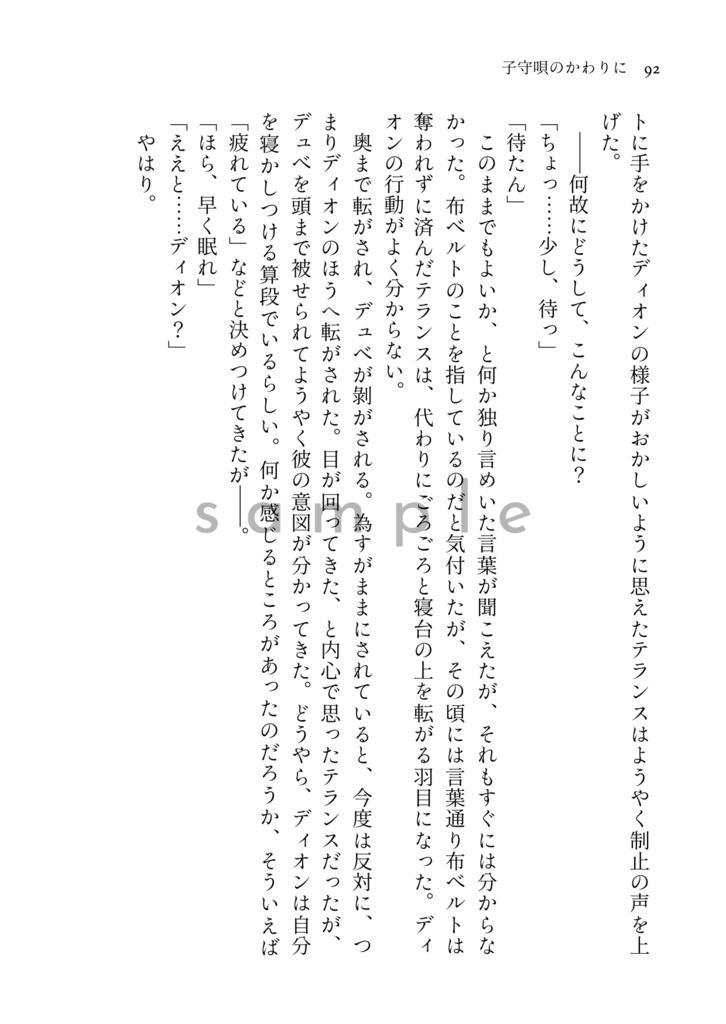 子守唄のかわりに 92
トに手をかけたディオンの様子がおかしいように思えたテランスはようやく制止の声を上
げた。
――何故にどうして、こんなことに?
「ちょっ……少し、待っ」
「待たん」
このままでもよいか、と何か独り言めいた言葉が聞こえたが、それもすぐには分からな
かった。布ベルトのことを指しているのだと気付いたが、その頃には言葉通り布ベルトは
奪われずに済んだテランスは、代わりにごろごろと寝台の上を転がる羽目になった。ディ
オンの行動がよく分からない。
奥まで転がされ、デュベが剝がされる。為すがままにされていると、今度は反対に、つ
まりディオンのほうへ転がされた。目が回ってきた、と内心で思ったテランスだったが、
デュベを頭まで被せられてようやく彼の意図が分かってきた。どうやら、ディオンは自分
を寝かしつける算段でいるらしい。何か感じるところがあったのだろうか、そういえば
「疲れている」などと決めつけてきたが――。
「ほら、早く眠れ」
「ええと……ディオン?」
やはり。
sample